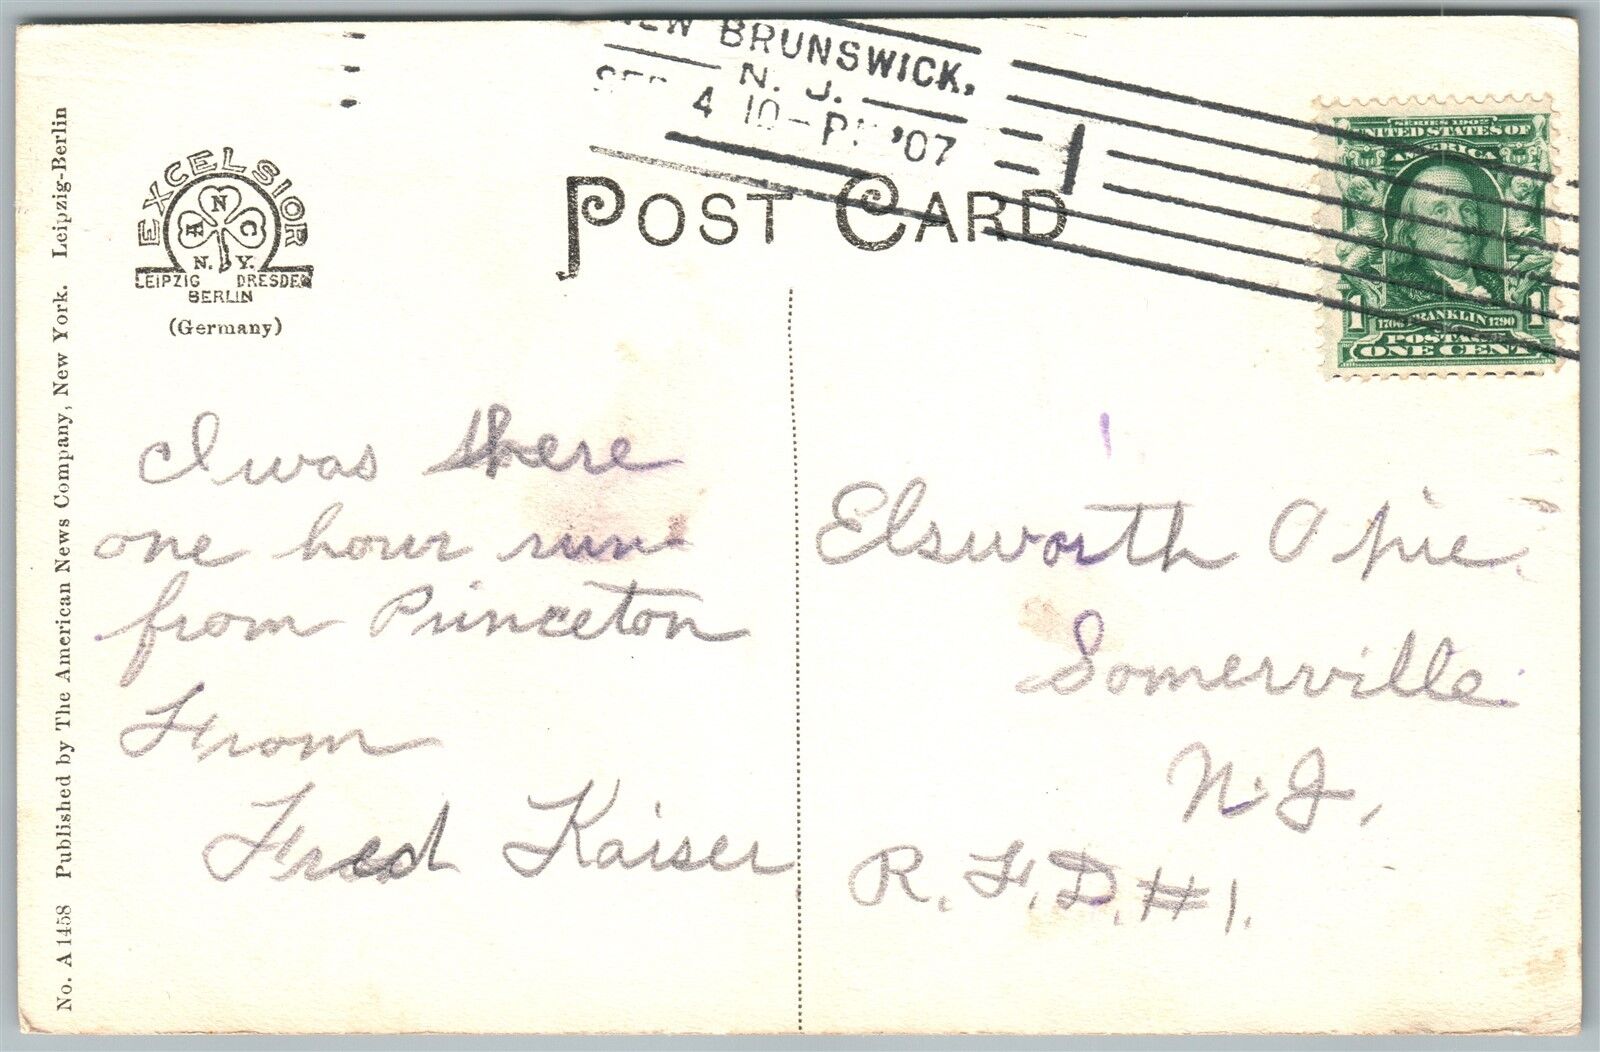 NEW BRUNSWICK,
N. J.
SEP 4 10-P '07
1
EXCELSIOR
A N C
N. Y.
LEIPZIG DRESDEN
BERLIN
(Germany)
POST CARD
SERIES 1902
UNITED STATES OF
AMERICA
1 1
1706 FRANKLIN 1790
POSTAGE
ONE CENT
No. A 1458 Published by The American News Company, New York. Leipzig-Berlin
I was there
one hour run
from Princeton
From
Fred Kaiser
Elsworth Opie.
Somerville
N. J.,
R. F. D. #1.